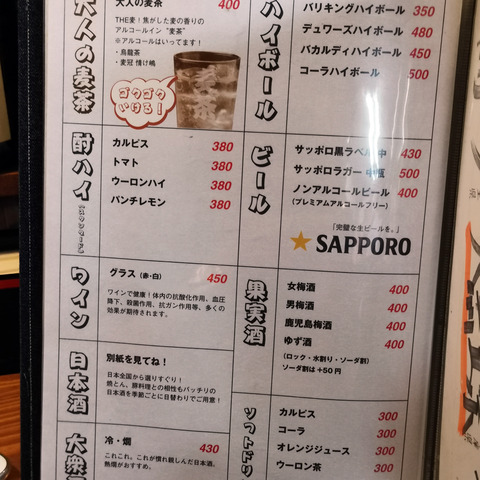 大人の麦茶
大人の麦茶 400
THE麦！焦がした麦の香りの
アルコールイン “麦茶”
※アルコールはいってます！
・烏龍茶
・麦冠 情け嶋
ゴクゴク
いける！
酎ハイ
カルピス 380
トマト 380
ウーロンハイ 380
パンチレモン 380
ワイン
グラス（赤・白） 450
ワインで健康！体内の抗酸化作用、血圧
降下、殺菌作用、抗ガン作用等、多くの
効果が期待されます。
日本酒
別紙を見てね！
日本全国から選りすぐり！
焼とん、豚料理との相性もバッチリの
日本酒を季節ごとに日替わりでご用意！
大衆
冷・燗 430
これこれ。これが慣れ親しんだ日本酒。
熱燗がおすすめ。
ハイボール
バリキングハイボール 350
デュワーズハイボール 480
バカルディハイボール 450
コーラハイボール 500
ビール
サッポロ黒ラベル 中 430
サッポロラガー 中瓶 500
ノンアルコールビール 400
（プレミアムアルコールフリー）
「完璧な生ビールを。」
SAPPORO
果実酒
女梅酒 400
男梅酒 400
鹿児島梅酒 400
ゆず酒 400
（ロック・水割り・ソーダ割）
ソーダ割は＋50円
ソフトドリ
カルピス 300
コーラ 300
オレンジジュース 300
ウーロン茶 300